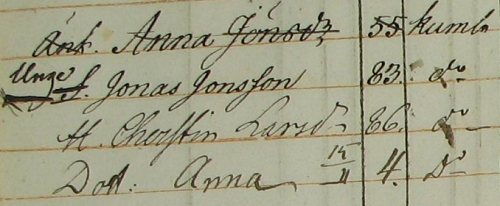 Änk. Anna Jönsdr 55 Kumla
Unge f. Jonas Jonsson 83. do
H. Cherstin Larsdr 86. do
Dott. Anna 15/11 4. Do